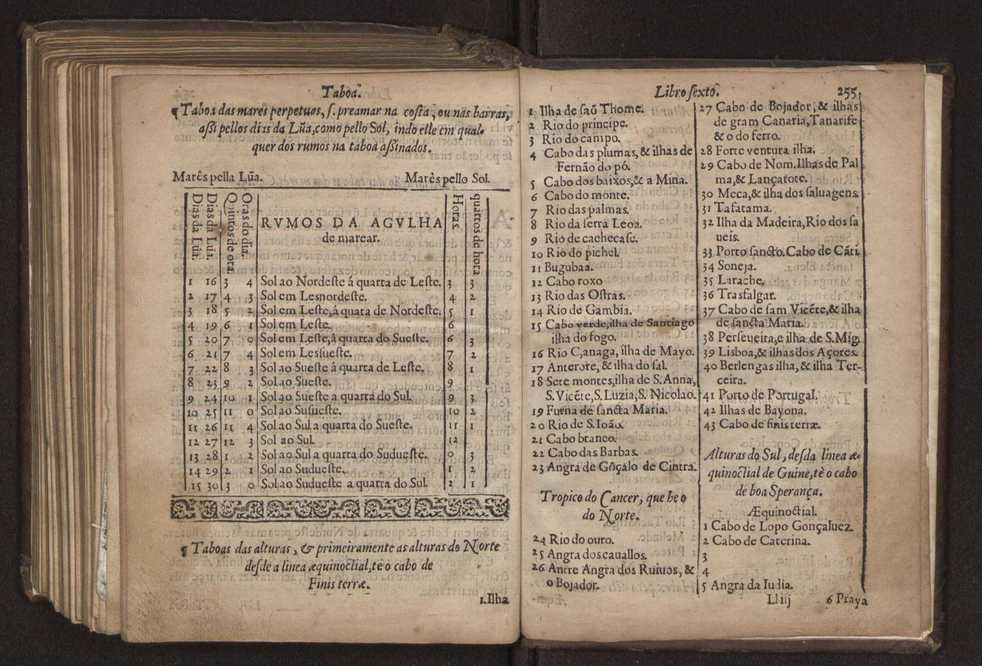 Taboa.
¶ Taboa das marès perpetuas, s. preamar na costa, ou nas barras,
assi pellos dias da Lũa, como pello Sol, indo elle em qual-
quer dos rumos na taboa assinados.
Marès pella Lũa. Marès pello Sol.
Dias da Lũa.
Dias da Lũa.
Quintos de ora
Oras do dia.
RVMOS DA AGVLHA
de marear.
Horas.
quartos de hora
1 16 3 4 Sol ao Nordeste à quarta de Leste. 3 3
2 17 4 3 Sol em Lesnordeste. 4 2
3 18 5 2 Sol em Leste, à quarta de Nordeste. 5 1
4 19 6 1 Sol em Leste. 6
5 20 7 0 Sol em Leste, à quarta do Sueste. 6 3
6 21 7 4 Sol em Lessueste. 7 2
7 22 8 3 Sol ao Sueste à quarta de Leste. 8 1
8 23 9 2 Sol ao Sueste. 9
9 24 10 1 Sol ao Sueste a quarta do Sul. 9 3
10 25 11 0 Sol ao Susueste. 10 2
11 26 11 4 Sol ao Sul a quarta do Sueste. 11 1
12 27 12 3 Sol ao Sul. 12
13 28 1 2 Sol ao Sul a quarta do Sudueste. 0 3
14 29 2 1 Sol ao Sudueste. 1 2
15 30 3 0 Sol ao Sudueste a quarta do Sul. 2 1
¶ Taboas das alturas, & primeiramente as alturas do Norte
desde a linea æquinoctial, te o cabo de
Finis terræ.
1. Ilha
Libro sexto. 255
1 Ilha de saõ Thome.
2 Rio do principe.
3 Rio do campo.
4 Cabo das plumas, & ilhas de
Fernão do pó.
5 Cabo dos baixos, & a Mina.
6 Cabo do monte.
7 Rio das palmas.
8 Rio da serra Leoa.
9 Rio de cachecase.
10 Rio do pichel.
11 Bugubaa.
12 Cabo roxo
13 Rio das Ostras.
14 Rio de Gambia.
15 Cabo verde, ilha de Santiago
ilha do fogo.
16 Rio C,anaga, ilha de Mayo.
17 Anterote, & ilha do sal.
18 Sete montes, ilha de S. Anna,
S. Vicẽte, S. Luzia, S. Nicolao.
19 Furna de sancta Maria.
20 Rio de S. Ioão.
21 Cabo branco.
22 Cabo das Barbas.
23 Angra de Gõçalo de Cintra.
Tropico do Cancer, que he o
do Norte.
24 Rio do ouro.
25 Angra dos cauallos.
26 Antre Angra dos Ruiuos, &
o Bojador.
27 Cabo de Bojador, & ilhas
de gram Canaria, Tanarife
& o do ferro.
28 Forte ventura ilha.
29 Cabo de Nom. Ilhas de Pal
ma, & Lançarote.
30 Meca, & ilha dos saluagens.
31 Tafatama.
32 Ilha da Madeira, Rio dos sa
ueis.
33 Porto sancto. Cabo de Cãti.
34 Soneja.
35 Larache.
36 Trasfalgar.
37 Cabo de sam Vicẽte, & ilha
de sancta Maria.
38 Perseueira, e ilha de S. Mig.
39 Lisboa, & ilhas dos Açores.
40 Berlengas ilha, & ilha Ter-
ceira.
41 Porto de Portugal.
42 Ilhas de Bayona.
43 Cabo de finis terræ.
Alturas do Sul, desda linea æ-
quinoctial de Guine, tè o cabo
de boa Sperança.
Æquinoctial.
1 Cabo de Lopo Gonçaluez.
2 Cabo de Caterina.
3
4
5 Angra da Iudia.
Ll iij 6 Praya